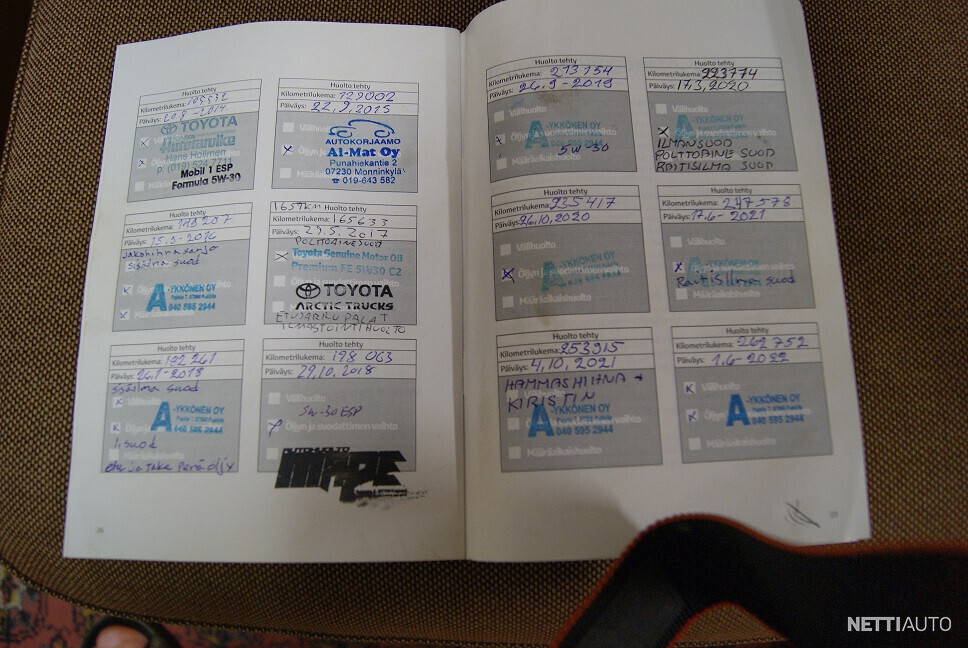 Huolto tehty
Kilometrilukema: 105532
Päiväys: 20.8-2014
TOYOTA
Hans Holimen
p. (019) 524 7711
Mobil 1 ESP
Formula 5W-30
Huolto tehty
Kilometrilukema: 129002
Päiväys: 22.9.2015
AUTOKORJAAMO
Al-Mat Oy
Punahiekantie 2
07230 Monninkylä
☎ 019-643 582
Huolto tehty
Kilometrilukema:
Päiväys: 25.5-2016
jakohihnasarja
sisäilma suod
A-YKKÖNEN OY
040 595 2944
1659km Huolto tehty
Kilometrilukema: 165633
Päiväys: 29.5.2017
POLTTOAINESUOD
Toyota Genuine Motor Oil
Premium FE 5W30 C2
TOYOTA
ARCTIC TRUCKS
ETUJARRUPALAT
ILMASTOINTIHUOLTO
Huolto tehty
Kilometrilukema: 192261
Päiväys: 26.1-2018
sisäilma suod
Välihuolto
A-YKKÖNEN OY
040 595 2944
I.suod
etu ja taka perä öljy
Huolto tehty
Kilometrilukema: 198 063
Päiväys: 29,10,2018
Välihuolto
5W-30 ESP
Öljyn ja suodattimen vaihto
26
Huolto tehty
Kilometrilukema: 213154
Päiväys: 26.9-2019
Välihuolto
A-YKKÖNEN OY
5W-30
Määräaikaishuolto
Huolto tehty
Kilometrilukema: 223774
Päiväys: 17.3.2020
Välihuolto
A-YKKÖNEN OY
ILMANSUOD
POLTTOAINE SUOD
RAITISILMA SUOD
Huolto tehty
Kilometrilukema: 235417
Päiväys: 26,10,2020
Välihuolto
A-YKKÖNEN OY
Määräaikaishuolto
Huolto tehty
Kilometrilukema: 247575
Päiväys: 17.6-2021
Välihuolto
A-YKKÖNEN OY
Raitisilma suod
Määräaikaishuolto
Huolto tehty
Kilometrilukema: 253915
Päiväys: 4,10,2021
HAMMASHIHNA +
KIRISTIN
A-YKKÖNEN OY
040 595 2944
Määräaikaishuolto
Huolto tehty
Kilometrilukema: 262752
Päiväys: 1.6-2022
Välihuolto
A-YKKÖNEN OY
040 595 2944
Määräaikaishuolto
NETTIAUTO